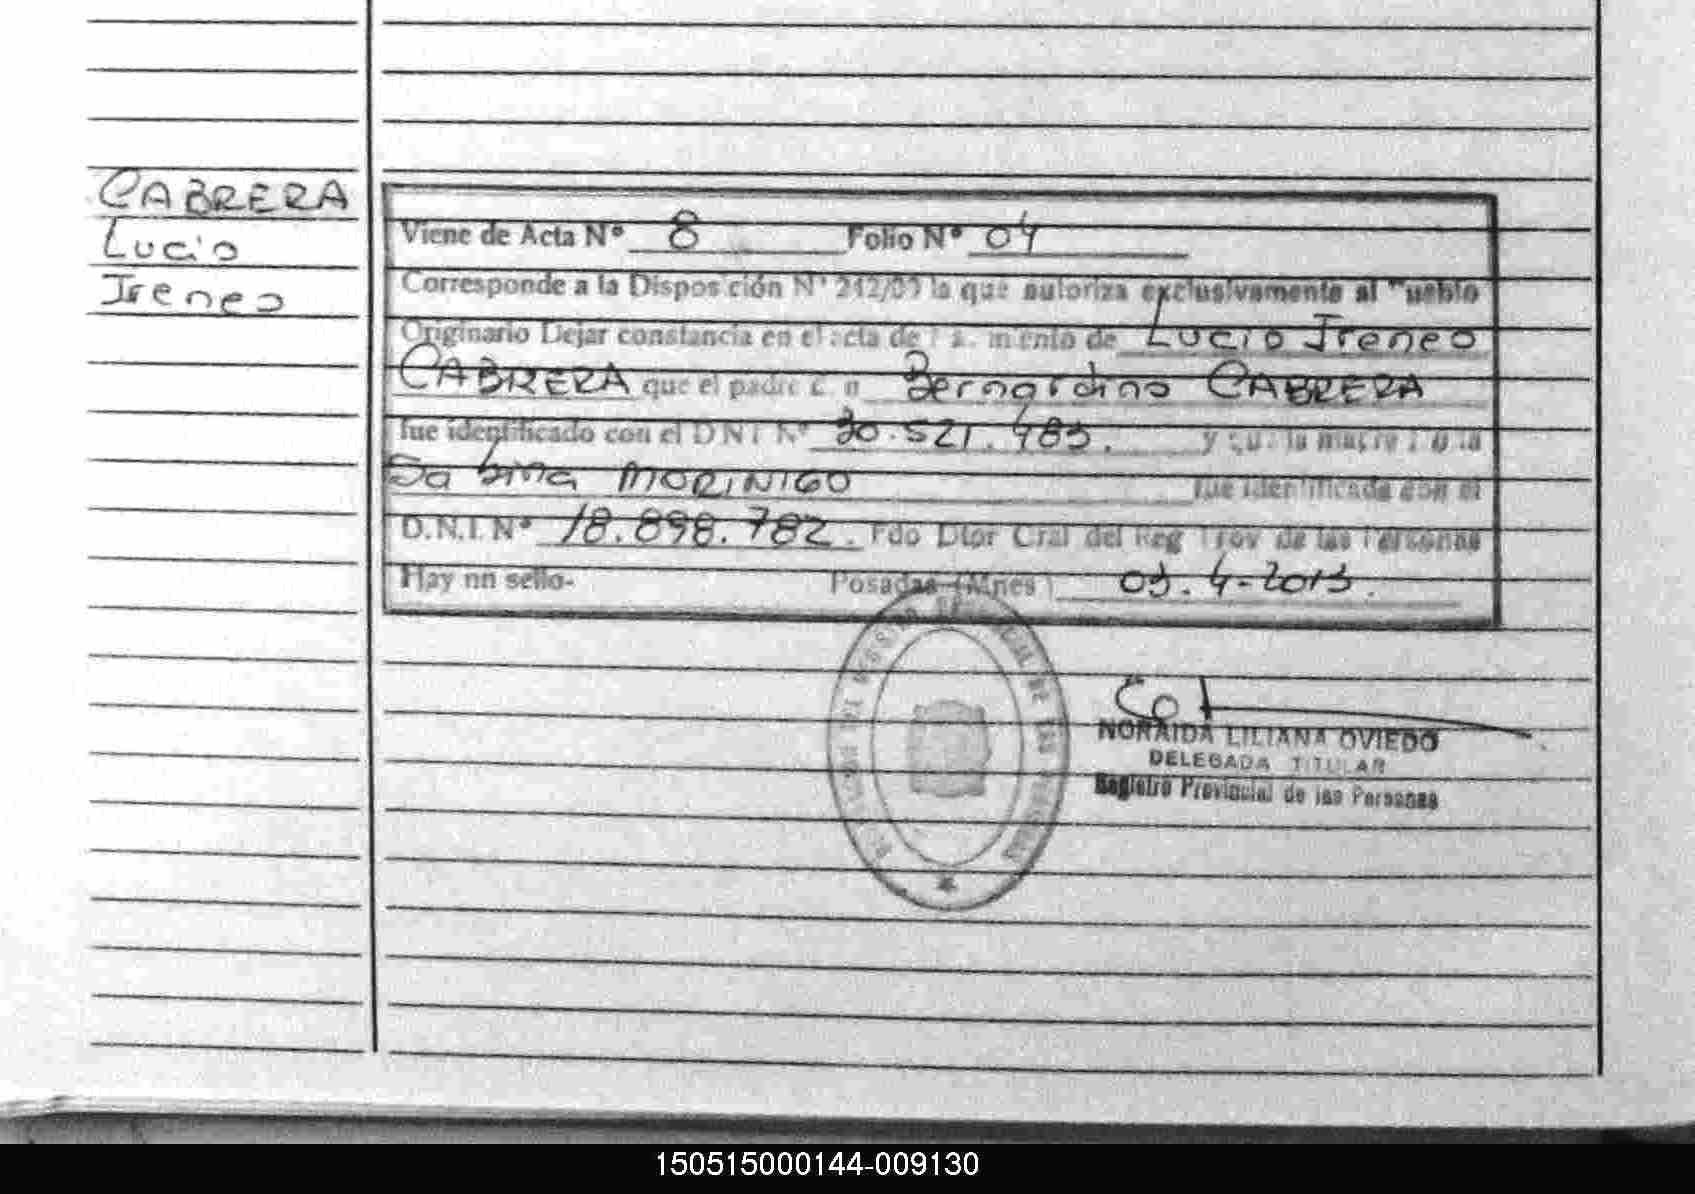 CABRERA
Lucio
Ireneo
Viene de Acta Nº 8 Folio Nº 04
Corresponde a la Disposición Nº 242/09 la que autoriza exclusivamente al Pueblo
Originario Dejar constancia en el acta de de Lucio Ireneo
CABRERA que el padre Bernardino CABRERA
fue identificado con el D N I Nº 30.521.483. y que la madre
Sabina MORINIGO fue identificada con el
D.N.I. Nº 18.898.782. Fdo Dtor Gral del Reg Prov de las Personas
Hay un sello- Posadas (Mnes) 03.4-2013.
NORAIDA LILIANA OVIEDO
DELEGADA TITULAR
Registro Provincial de las Personas
150515000144-009130